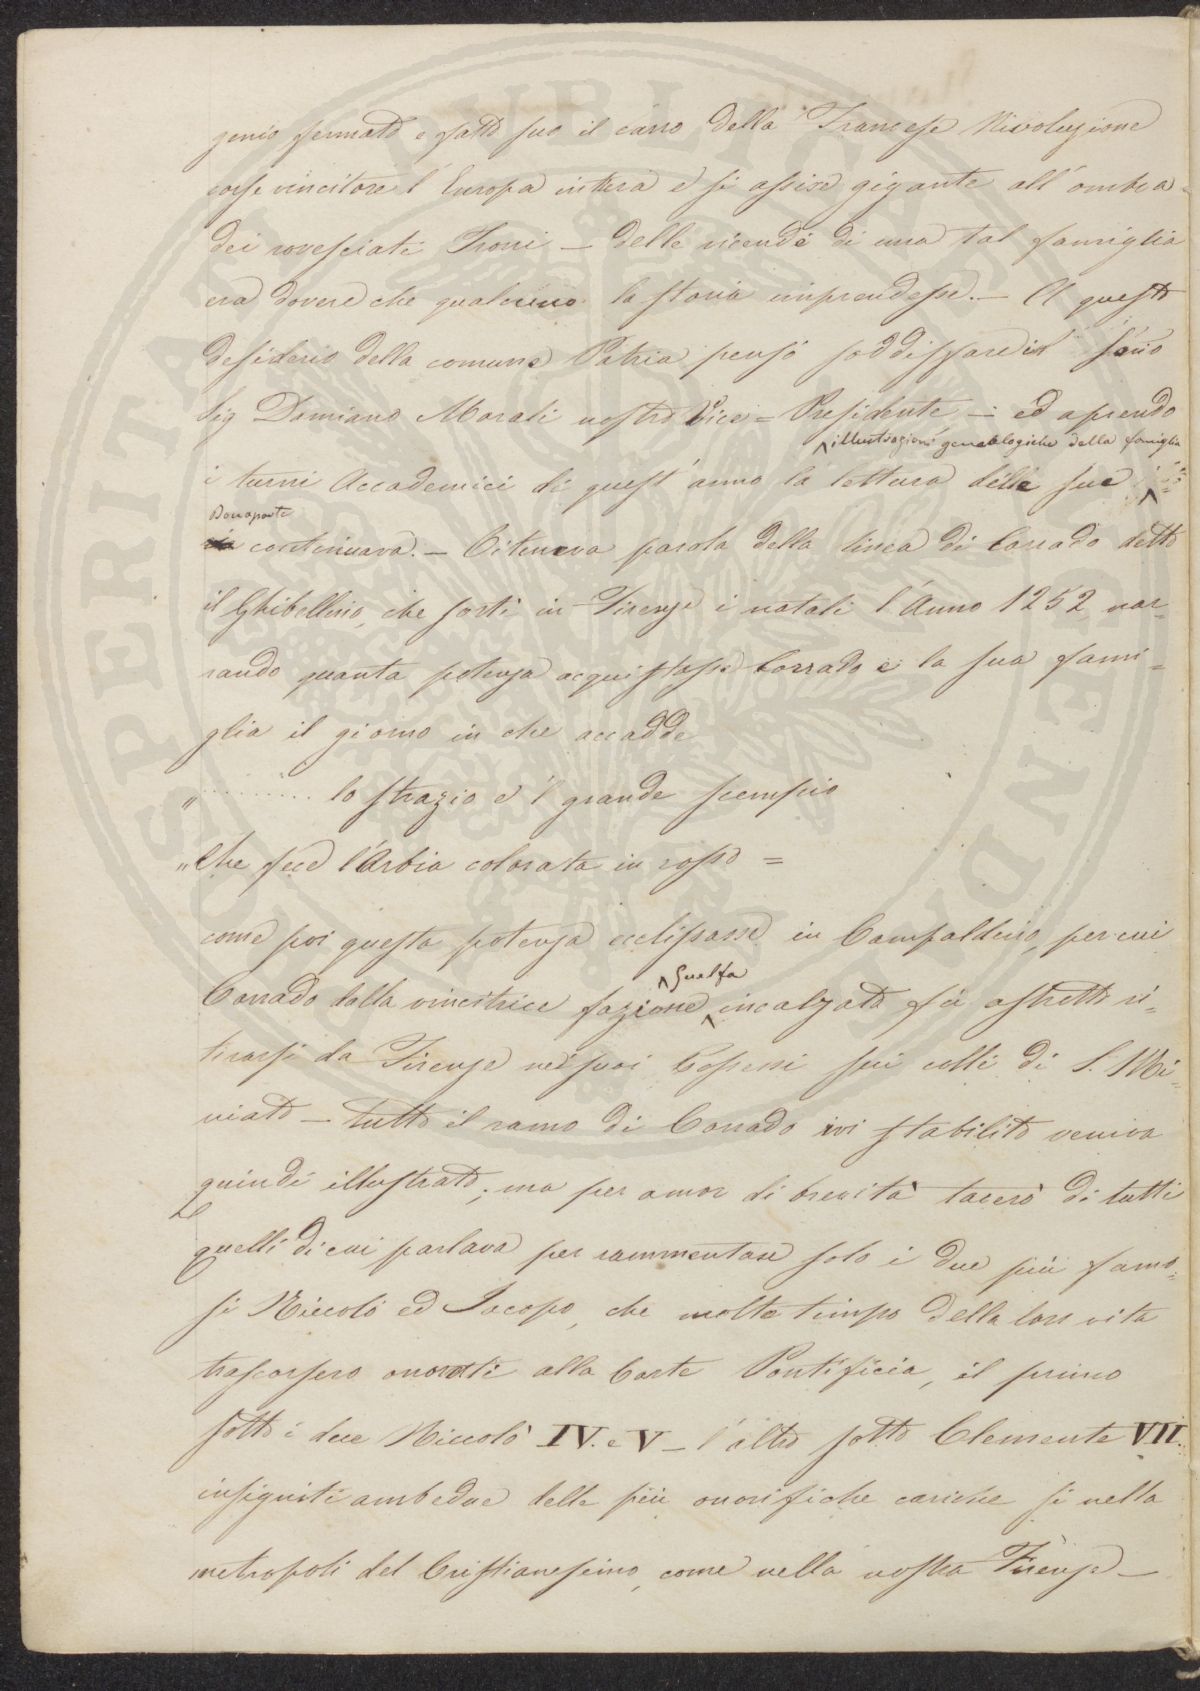 genio fermato e fatto suo il carro della Francese Rivoluzione
corse vincitore l'Europa intera e si assise gigante all'ombra
dei rovesciati Troni — delle vicende di una tal famiglia
era dovere che qualcuno la storia imprendesse. — A questo
desiderio della comune Patria pensò soddisfare il
Sig Damiano Morali nostro Vice = Presidente — ed aprendo
illustrazioni genealogiche della famiglia
i turni Accademici di quest'anno la lettura delle sue
Bonaparte
continuava. — Ci teneva parola della linea di Corrado detto
il Ghibellino, che sortì in Firenze i natali l'Anno 1252, nar=
rando quanta potenza acquistasse Corrado e la sua fami=
glia il giorno in che accadde
" .......... lo strazio e 'l grande scempio
" Che fece l'Arbia colorata in rosso =
come poi questa potenza ecclissasse in Campaldino, per cui
Guelfa
Corrado dalla vincitrice fazione incalzato fù astretto ri=
tirarsi da Firenze nei suoi Possessi sui colli di S. Mi=
niato — tutto il ramo di Corrado ivi stabilito veniva
quindi illustrato; ma per amor di brevità tacerò di tutti
quelli di cui parlava per rammentare solo i due più famo=
si Niccolò ed Jacopo, che molto tempo della loro vita
trascorsero onorati alla Corte Pontificia, il primo
sotto i due Niccolò IV. e V — l'altro sotto Clemente VII.
insigniti ambedue delle più onorifiche cariche si nella
metropoli del Cristianesimo, come nella nostra Firenze —